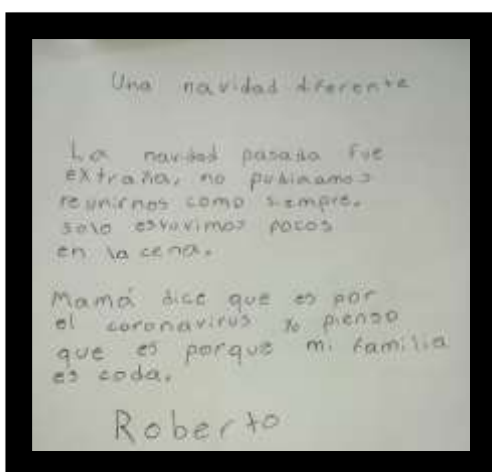 Una navidad diferente
La navidad pasada fue
extraña, no pudimamos
reunirnos como siempre.
solo estuvimos pocos
en la cena.
Mamá dice que es por
el coronavirus yo pienso
que es porque mi familia
es coda.
Roberto